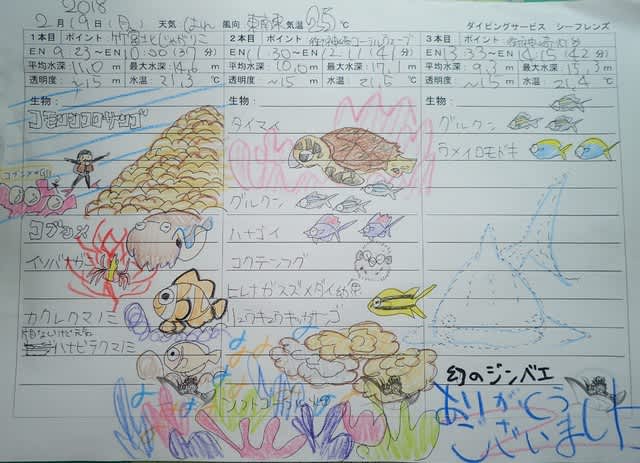 2018
2月19日(月) 天気 はれ 風向 東南東 気温 25℃ ダイビングサービス シーフレンズ
1本目 ポイント
EN 9:23〜EN 10:00(37分)
平均水深: 11.0m 最大水深: 14.6m
透明度: 〜15m 水温: 21.3℃
生物:
コモンシコロサンゴ
コブシメ
イソバナガニ
カクレクマノミ
ハナビラクマノミ
2本目 ポイント
EN 11:30〜EN 12:11(41分)
平均水深: 10.0m 最大水深: 17.1m
透明度: 〜15m 水温: 21.5℃
生物:
タイマイ
グルクン
ハナゴイ
コクテンフグ
ヒレナガスズメダイ幼魚
リュウキュウキッカサンゴ
ソフトコーラル
3本目 ポイント
平均水深: 9.3m 最大水深: 13.3m
透明度: 〜15m 水温: 21.4℃
生物:
グルクン
ウメイロモドキ
幻のジンベエ
ありがとう
ございました